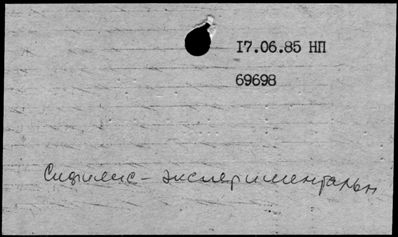 17.06.85 НП
69698
Сифилис - экспериментальн